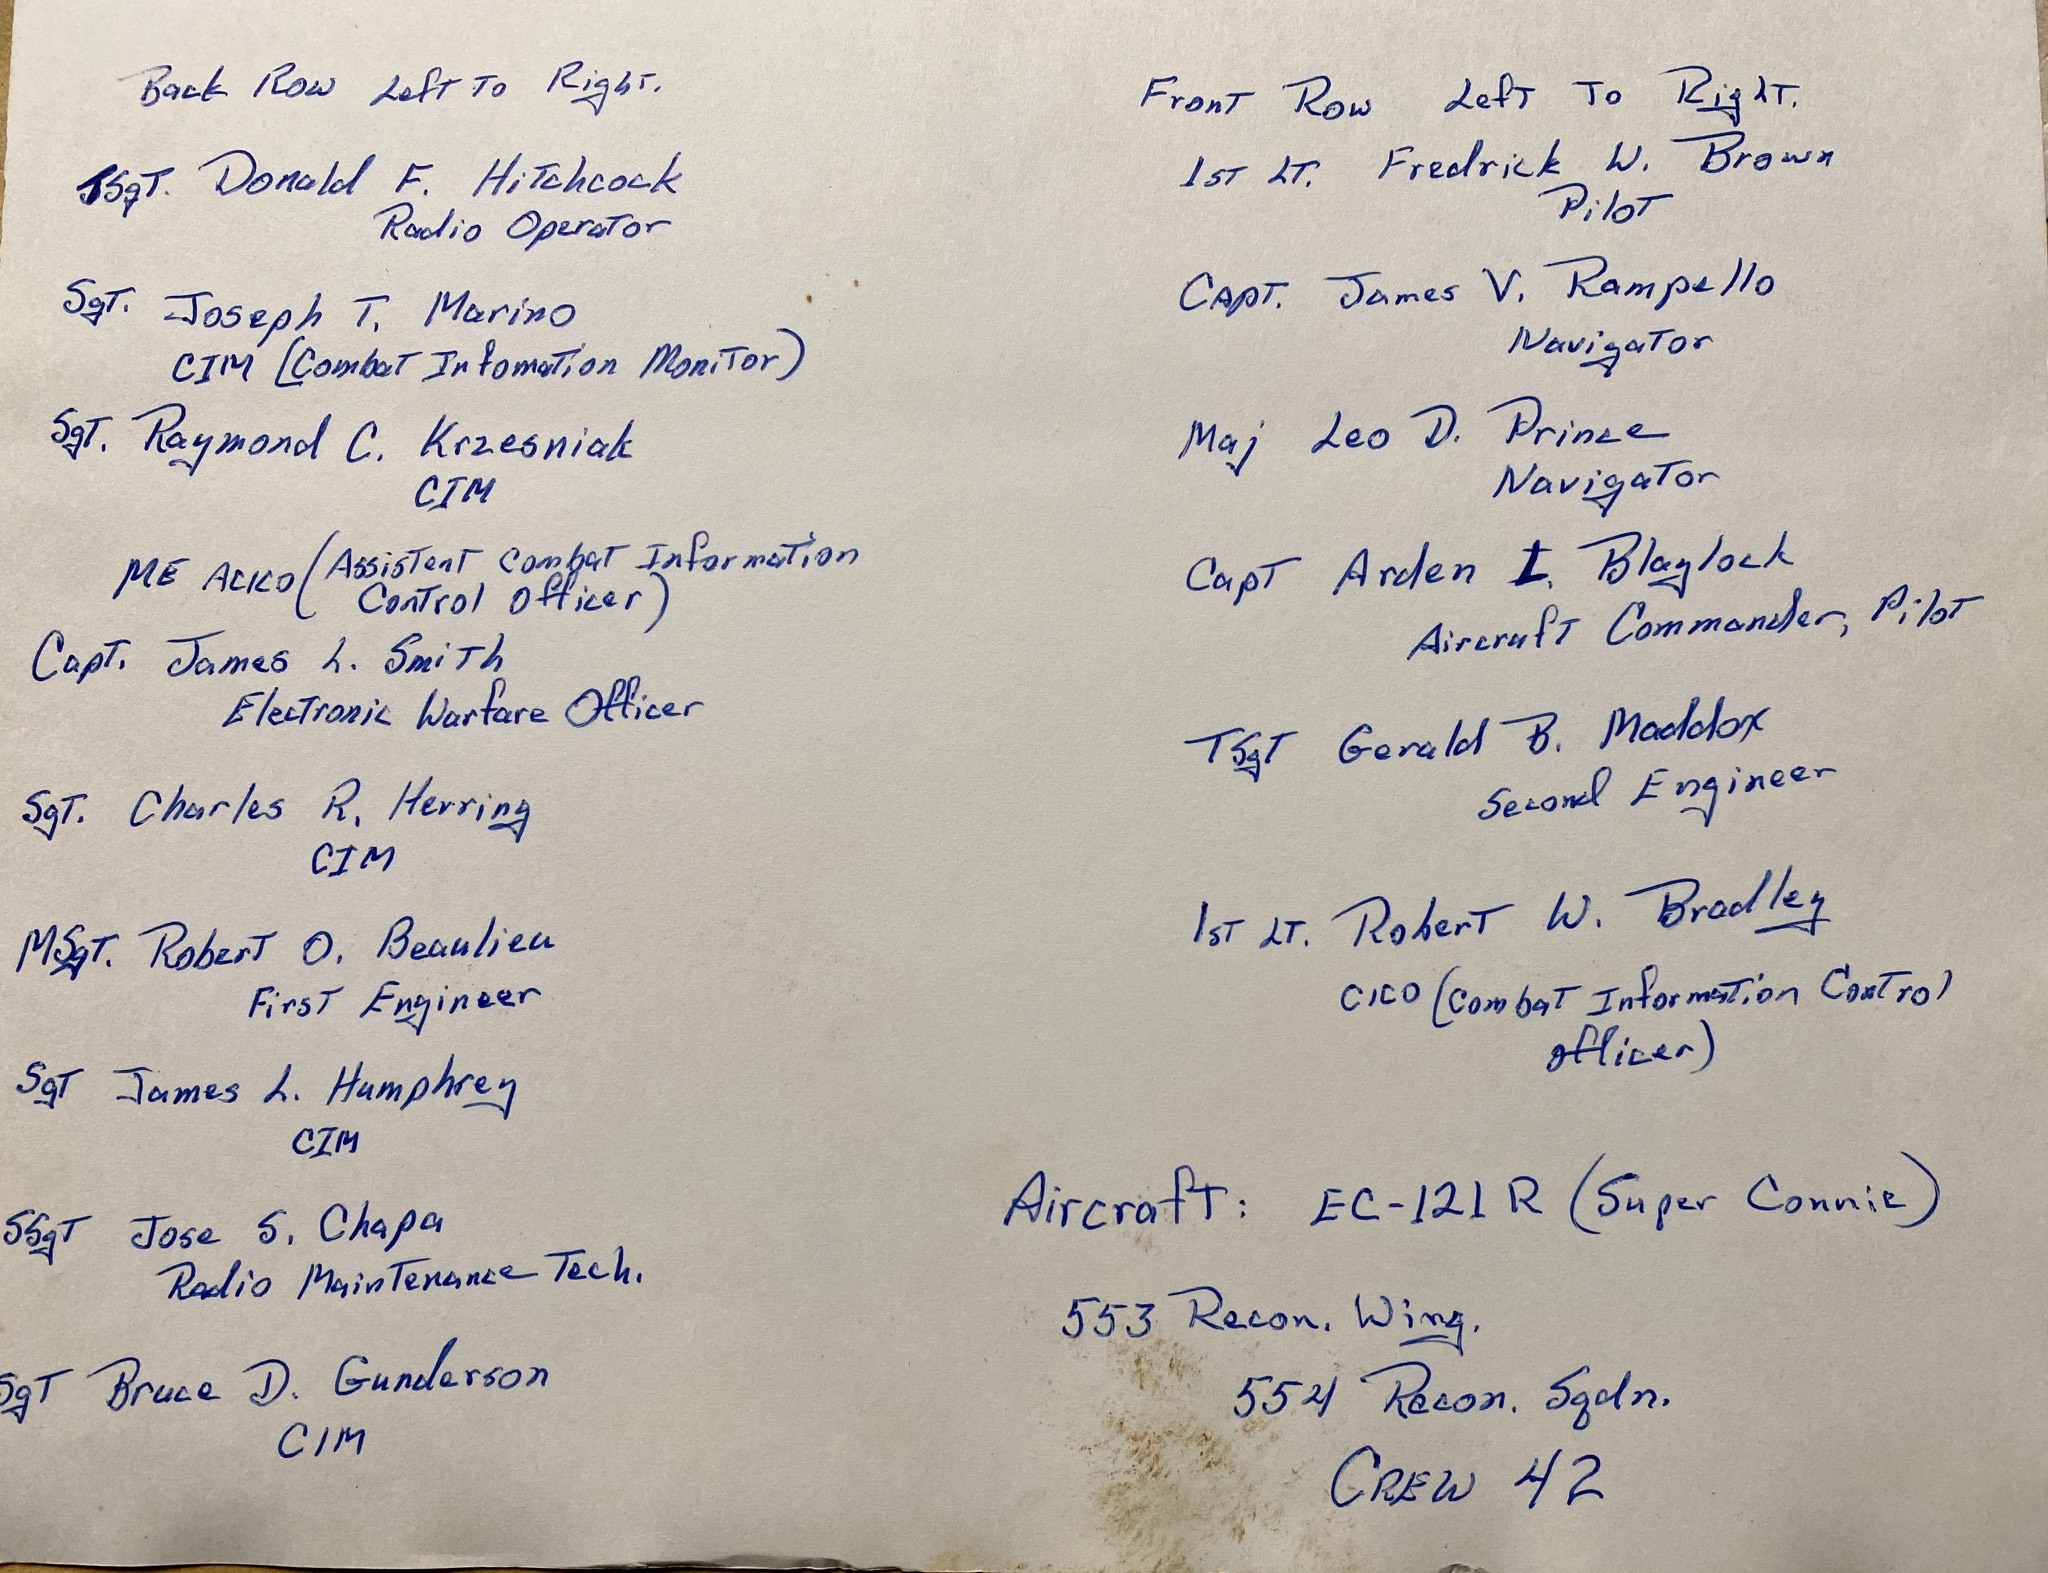 Back Row Left To Right.
SSgT. Donald F. Hitchcock
Radio Operator
SgT. Joseph T. Marino
CIM (Combat Infomation Monitor)
SgT. Raymond C. Krzesniak
CIM
ME ACICO (Assistent Combat Information
Control Officer)
Capt. James L. Smith
Electronic Warfare Officer
SgT. Charles R. Herring
CIM
MSgT. Robert O. Beaulieu
First Engineer
SgT James L. Humphrey
CIM
SSgT Jose S. Chapa
Radio Maintenance Tech.
SgT Bruce D. Gunderson
CIM
Front Row Left To Right.
1st LT. Fredrick W. Brown
Pilot
Capt. James V. Rampello
Navigator
Maj Leo D. Prince
Navigator
Capt Arden I. Blaylock
Aircraft Commander, Pilot
TSgT Gerald B. Maddox
Second Engineer
1st LT. Robert W. Bradley
CICO (Combat Information Control
Officer)
Aircraft: EC-121R (Super Connie)
553 Recon. Wing.
554 Recon. Sqdn.
CREW 42